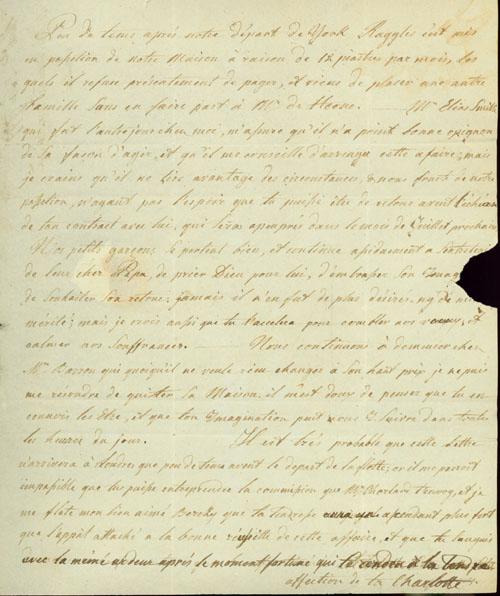 Peu de tems après notre départ de York Ruggles s'est mis
en possession de notre Maison à raison de 12 piastres par mois, les
quels il refuse présentement de payer, et viens de placer une autre
famille sans en faire part à Mr de
qui fut l'autre jour chez moi, m'assure qu'il n'a point bonne opignon
de sa façon d'agir, et qu'il me conseille d'arrenger cette afaire; mais
je crains qu'il ne tire avantage des circonstances, & nous de notre
possesion, n'ayant pas l'espoire que tu puisse être de retour avant
de ton contract avec lui, qui sera apeuprès dans le mois de Juillet prochain
Nos petits garçons se portent bien, et continue
de leur cher Papa, de prier Dieu pour lui, d'embrasser son Image
de souhaiter son retour; jamais il n'en fut de plus désirer, ny de
mérité; mais, je crois aussi que tu pour combler nos voeux, et
calmer nos Souffrances. Nous continuons à demeurer chez
Mr qui quoiqu'il ne veule rien changer à son haut prix je ne puis
me résoudre de quitter sa Maison, il m'est doux de penser que tu en
connois les être, et que ton Imagination puit nous y suivre dans toute
les heures du jour. Il est très probable que cette lettre
n'arrivera à Londres que peu de tems avant le départ de la flotte; or il me paroit
impossible que tu puisse entreprendre la commission que Mr, et je
me flate mon bien aimé que tu cependant plus fort
que l'appât attaché à la bonne réussite de cette affaire, et que tu
avec la même ardeur après le moment fortuné qui te rendera à la tendre
affection de ta Charlotte